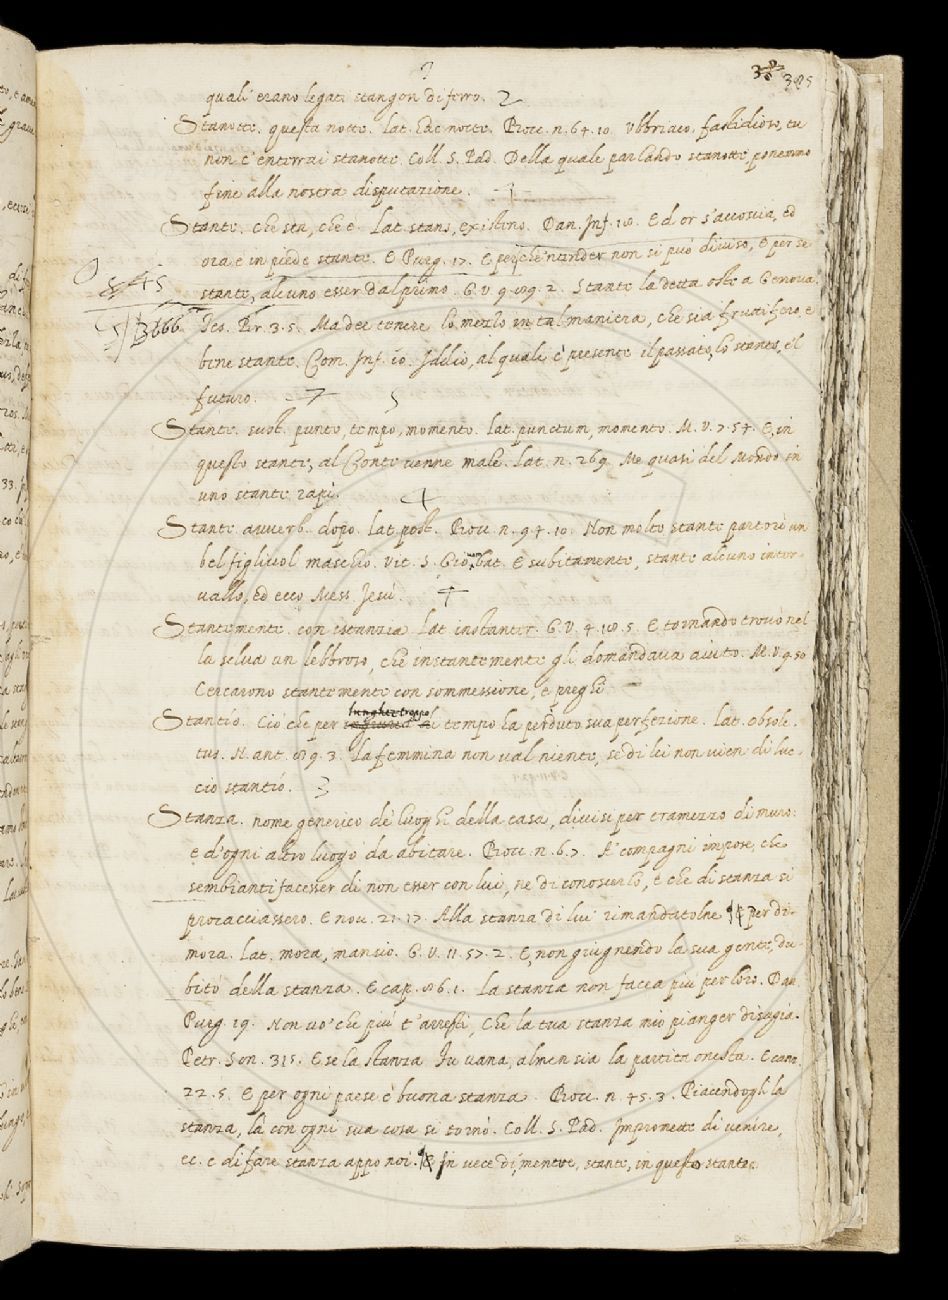 385
quali erano legati stangon di ferro. 2
Stanotte. questa notte. Lat. hac nocte. Bocc. n. 64. 10. Ubbriaco fastidioso, tu
non c'enterrai stanotte. Coll. S. Pad. Della quale parlando stanotte, ponemmo
fine alla nostra disputazione.
Stante. che sta, che è. Lat. stans, existens. Dan. Inf. 18. Ed or s'accoscia, ed
ora è in piede stante. E Purg. 17. E perchè 'ntender non si può diviso, e per se
stante, alcuno esser dal primo. G. V. 9. 89. 2. Stante la detta oste a Genova.
45
3666
Tes. Br. 3. 5. Ma dee tenere lo mezzo in tal maniera, che sia fruttifero, e
bene stante. Com. Inf. 10. Iddio, al quale è presente il passato, lo stante, e 'l
futuro. 7
Stante. sust. punto, tempo, momento. Lat. punctum, momento. M. V. 7. 54. E, in
questo stante, al Conte venne male. Lat. n. 269. Me quasi del Mondo in
uno stante rapì. 4
Stante avverb. dopo. Lat. post. Bocc. n. 94. 10. Non molto stante partorì un
bel figliuol maschio. Vit. S. Gio. Bat. E subitamente, stante alcuno inter-
vallo, ed ecco Mess. Jesù. 4
Stantemente. con istanzia. Lat. instanter. G. V. 4. 18. 5. E tornando trovò nel
la selva un lebbroso, che instantemente gli domandava aiuto. M. V. 9. 50
Cercarono stantemente con sommessione, e preghi
Stantío. Ciò che per lunghez troppo tempo ha perduto sua perfezione. Lat. obsole-
tus. N. ant. 89. 3. La femmina non val niente, se di lei non vien di luc-
cio stantío. 3
Stanza. nome generico de' luoghi della casa, divisi per tramezzo di muro:
e d'ogni altro luogo da abitare. Bocc. n. 6. 7. A' compagni impose, che
sembianti facesser di non esser con lui, ne di conoscerlo, e che di stanza si
procacciassero. E nov. 21. 17. Alla stanza di lui rimandatolne per di-
mora. Lat. mora, mansio. G. V. 11. 57. 2. E, non giugnendo la sua gente, du-
bitò della stanza. E cap. 86. 1. La stanza non facea più per loro. Dan
Purg. 19. Non vo' che più t'arresti, Che la tua stanza mio pianger disagia.
Petr. Son. 315. E se la stanza Fu vana, almen sia la partita onesta. E canz.
22. 5. E per ogni paese è buona stanza. Bocc. n. 45. 3. Piacendogli la
stanza, là con ogni sua cosa si tornò. Coll. S. Pad. Impronette di venire,
ec. e di fare stanza appo noi. In vece di mentre, stante, in questo stante.